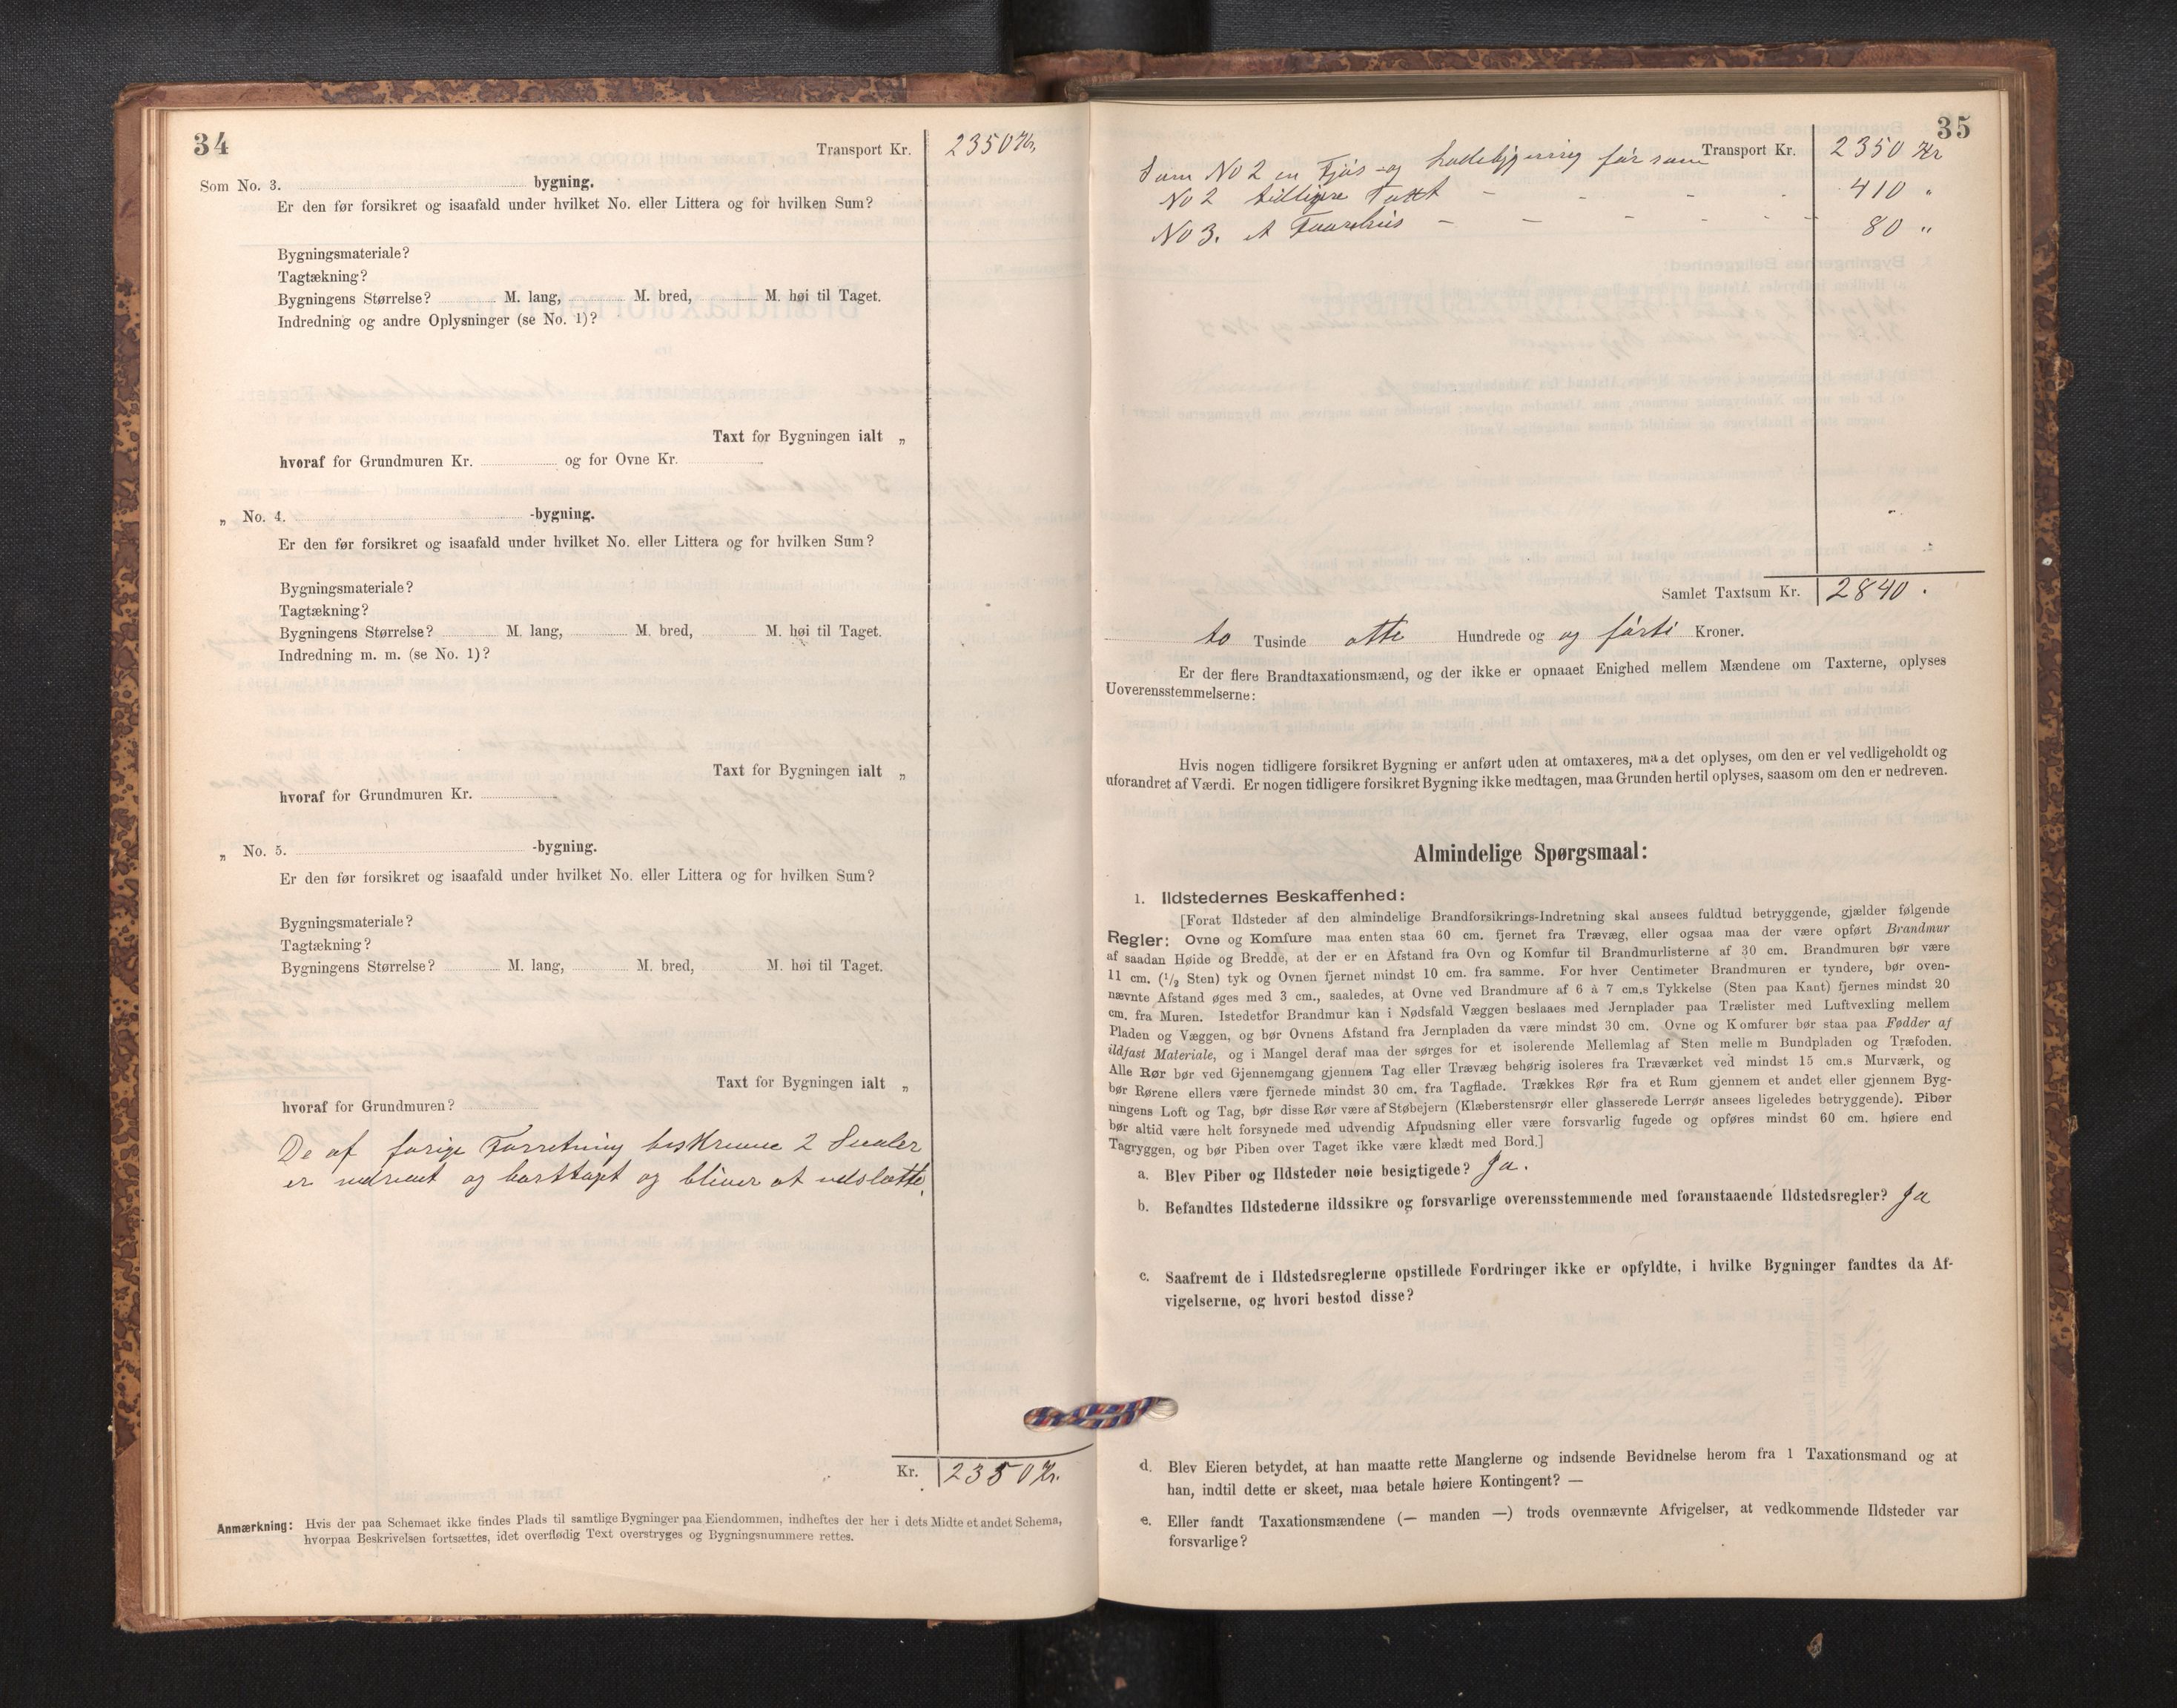 34
Transport Kr. 2350 Kr.
Som No. 3. bygning.
Er den før forsikret og isaafald under hvilket No. eller Littera og for hvilken Sum?
Bygningsmateriale?
Tagtækning?
Bygningens Størrelse? M. lang, M. bred, M. høi til Taget.
Indredning og andre Oplysninger (se No. 1)?
Taxt for Bygningen ialt „
hvoraf for Grundmuren Kr. og for Ovne Kr.
„ No. 4. -bygning.
Er den før forsikret og isaafald under hvilket No. eller Littera og for hvilken Sum?
Bygningsmateriale?
Tagtækning?
Bygningens Størrelse? M. lang, M. bred, M. høi til Taget.
Indredning m. m. (se No. 1)?
Taxt for Bygningen ialt „
hvoraf for Grundmuren Kr.
„ No. 5. -bygning.
Er den før forsikret og isaafald under hvilket No. eller Littera og for hvilken Sum?
Bygningsmateriale?
Tagtækning?
Bygningens Størrelse? M. lang, M. bred, M. høi til Taget.
Taxt for Bygningen ialt „
hvoraf for Grundmuren?
De af forige Forretning beskrevne 2 Svaler
er nedrevet og borttaget og bliver at udslætte.
Kr. 2350 Kr.
Anmærkning: Hvis der paa Schemaet ikke findes Plads til samtlige Bygninger paa Eiendommen, indheftes der her i dets Midte et andet Schema,
hvorpaa Beskrivelsen fortsættes, idet overflødig Text overstryges og Bygningsnummere rettes.
35
Transport Kr. 2350 Kr
Som No 2 en Fjøs og Ladebygning før som
No 2 tidligere Taxt - - - - 410 „
No 3. et Faarehus - - - - - 80 „
Samlet Taxtsum Kr. 2840.
to Tusinde otte Hundrede og og førti Kroner.
Er der flere Brandtaxationsmænd, og der ikke er opnaaet Enighed mellem Mændene om Taxterne, oplyses
Uoverensstemmelserne:
Hvis nogen tidligere forsikret Bygning er anført uden at omtaxeres, maa det oplyses, om den er vel vedligeholdt og
uforandret af Værdi. Er nogen tidligere forsikret Bygning ikke medtagen, maa Grunden hertil oplyses, saasom om den er nedreven.
Almindelige Spørgsmaal:
1. Ildstedernes Beskaffenhed:
[Forat Ildsteder af den almindelige Brandforsikrings-Indretning skal ansees fuldtud betryggende, gjælder følgende
Regler: Ovne og Komfure maa enten staa 60 cm. fjernet fra Trævæg, eller ogsaa maa der være opført Brandmur
af saadan Høide og Bredde, at der er en Afstand fra Ovn og Komfur til Brandmurlisterne af 30 cm. Brandmuren bør være
11 cm. (1/2 Sten) tyk og Ovnen fjernet mindst 10 cm. fra samme. For hver Centimeter Brandmuren er tyndere, bør oven-
nævnte Afstand øges med 3 cm., saaledes, at Ovne ved Brandmure af 6 à 7 cm.s Tykkelse (Sten paa Kant) fjernes mindst 20
cm. fra Muren. Istedetfor Brandmur kan i Nødsfald Væggen beslaaes med Jernplader paa Trælister med Luftvexling mellem
Pladen og Væggen, og bør Ovnens Afstand fra Jernpladen da være mindst 30 cm. Ovne og Komfurer bør staa paa Fødder af
ildfast Materiale, og i Mangel deraf maa der sørges for et isolerende Mellemlag af Sten mellem Bundpladen og Træfoden.
Alle Rør bør ved Gjennemgang gjennem Tag eller Trævæg behørig isoleres fra Træværket ved mindst 15 cm.s Murværk, og
bør Rørene ellers være fjernede mindst 30 cm. fra Tagflade. Trækkes Rør fra et Rum gjennem et andet eller gjennem Byg-
ningens Loft og Tag, bør disse Rør være af Støbejern (Klæberstensrør eller glasserede Lerrør ansees ligeledes betryggende). Piber
bør altid være helt forsynede med udvendig Afpudsning eller være forsvarlig fugede og opføres mindst 60 cm. høiere end
Tagryggen, og bør Piben over Taget ikke være klædt med Bord.]
a. Blev Piber og Ildsteder nøie besigtigede? Ja.
b. Befandtes Ildstederne ildssikre og forsvarlige overensstemmende med foranstaaende Ildstedsregler? Ja
c. Saafremt de i Ildstedsreglerne opstillede Fordringer ikke er opfyldte, i hvilke Bygninger fandtes da Af-
vigelserne, og hvori bestod disse?
d. Blev Eieren betydet, at han maatte rette Manglerne og indsende Bevidnelse herom fra 1 Taxationsmand og at
han, indtil dette er skeet, maa betale høiere Kontingent? —
e. Eller fandt Taxationsmændene (— manden —) trods ovennævnte Afvigelser, at vedkommende Ildsteder var
forsvarlige?